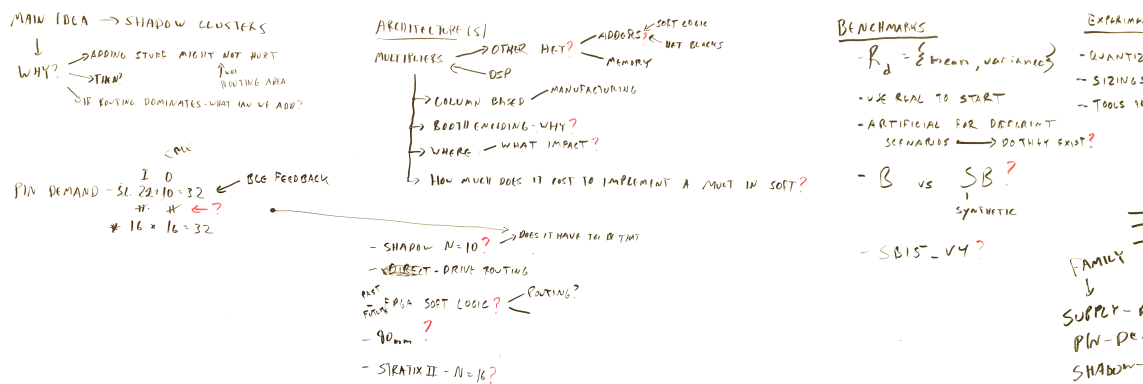 MAIN IDEA → SHADOW CLUSTERS
WHY?
ADDING STUFF MIGHT NOT HURT
ROUTING AREA
THEN?
IF ROUTING DOMINATES - WHAT CAN WE ADD?
I O
PIN DEMAND - SL 22+10=32
BLE FEEDBACK
# # ← ?
* 16 * 16 = 32
ARCHITECTURE(S)
MULTIPLIERS
OTHER HET?
ADDERS?
SOFT LOGIC
HET BLOCKS
MEMORY
DSP
COLUMN BASED — MANUFACTURING
BOOTH ENCODING - WHY?
WHERE — WHAT IMPACT?
HOW MUCH DOES IT COST TO IMPLEMENT A MULT IN SOFT?
- SHADOW N=10?
DOES IT HAVE TO BE THAT
- DIRECT - DRIVE ROUTING
PAST
FUTURE
FPGA SOFT LOGIC?
ROUTING?
- 90nm?
- STRATIX II - N=16?
BENCHMARKS
- Rd = {mean, variances}
- USE REAL TO START
- ARTIFICIAL FOR DIFFERENT
SCENARIOS → DO THEY EXIST?
- B vs SB?
SYNTHETIC
- SB15_V4?
EXPERIME
- QUANTIZ
- SIZINGS
- TOOLS
FAMILY
↓
SUPPLY -
PIN-DE
SHADOW-